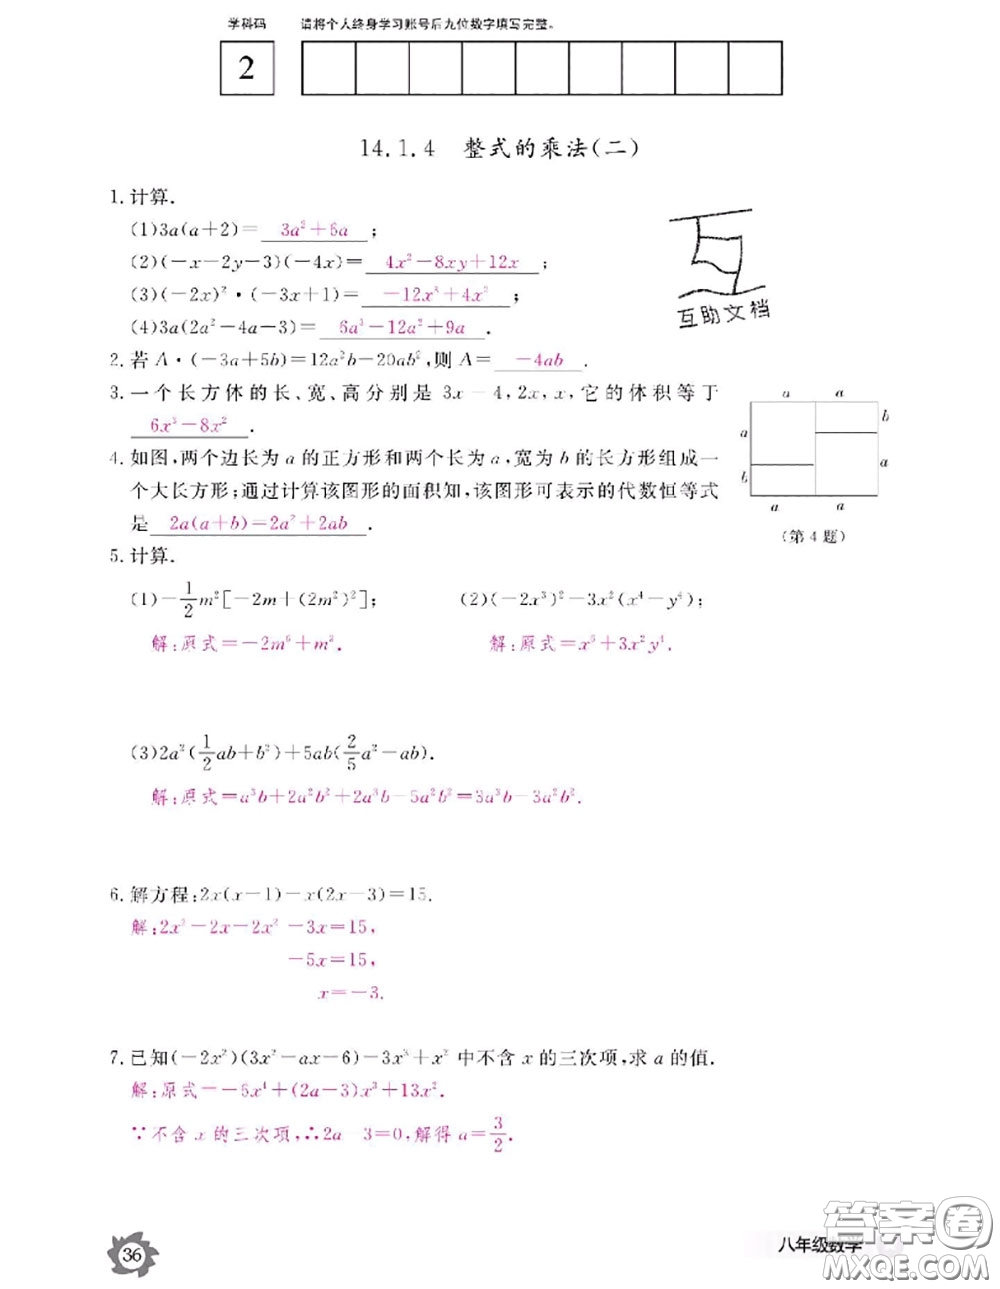 学科码 请将个人终身学习账号后九位数字填写完整。
2
14.1.4 整式的乘法(二)
1. 计算.
(1)3a(a+2)= 3a²+6a ;
(2)(-x-2y-3)(-4x)= 4x²-8xy+12x ;
(3)(-2x)²·(-3x+1)= -12x³+4x² ;
(4)3a(2a²-4a-3)= 6a³-12a²+9a .
互助文档
2. 若 A·(-3a+5b)=12a²b-20ab²,则 A= -4ab .
3. 一个长方体的长、宽、高分别是 3x-4,2x,x,它的体积等于
6x³-8x² .
4. 如图,两个边长为 a 的正方形和两个长为 a,宽为 b 的长方形组成一
个大长方形;通过计算该图形的面积知,该图形可表示的代数恒等式
是 2a(a+b)=2a²+2ab .
a a
a b
b a
a a
(第 4 题)
5. 计算.
(1)-1/2m²[-2m+(2m²)²]; (2)(-2x³)²-3x²(x⁴-y⁴);
解:原式=-2m⁶+m³. 解:原式=x⁶+3x²y⁴.
(3)2a²(1/2ab+b²)+5ab(2/5a²-ab).
解:原式=a³b+2a²b²+2a³b-5a²b²=3a³b-3a²b².
6. 解方程:2x(x-1)-x(2x-3)=15.
解:2x²-2x-2x²-3x=15,
-5x=15,
x=-3.
7. 已知(-2x²)(3x²-ax-6)-3x³+x² 中不含 x 的三次项,求 a 的值.
解:原式=-5x⁴+(2a-3)x³+13x².
∵不含 x 的三次项,∴2a-3=0,解得 a=3/2.
36
八年级数学
答案卷
MXQE.COM